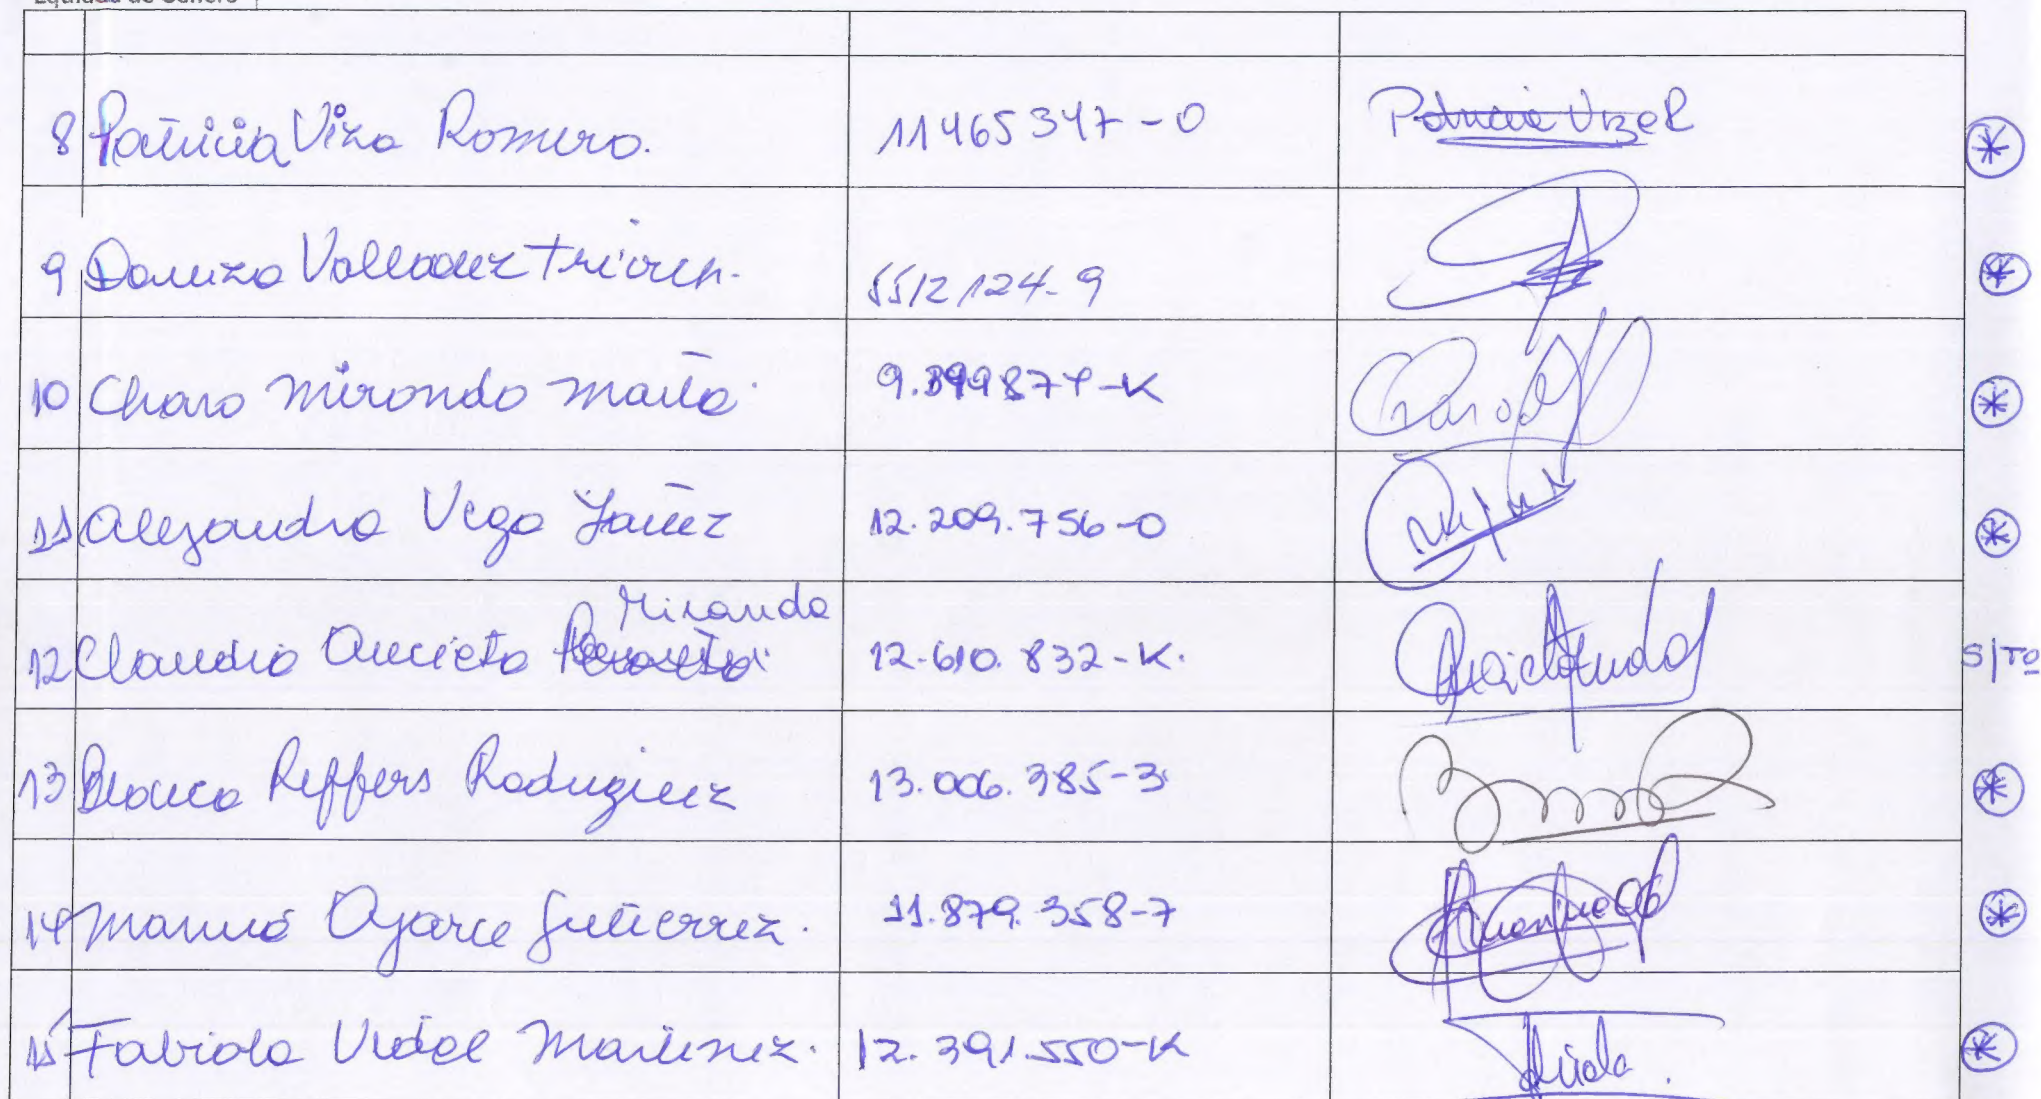 Equidad de Género
8 Patricia Viza Romero. 11465347-0 Patricia Viza R
9 Daniza Valladez Triven. 5512124-9
10 Charo Miranda Marta. 9.399877-K Charo
11 Alejandra Vega Yañez 12.209.756-0
Miranda
12 Claudia Anicieta 12.610.832-K. S/Tº
13 Blanca Reffers Rodriguez 13.006.385-3
14 Marina Oyarce Gutierrez. 11.879.358-7
15 Fabiola Vidal Martinez. 12.391.550-K